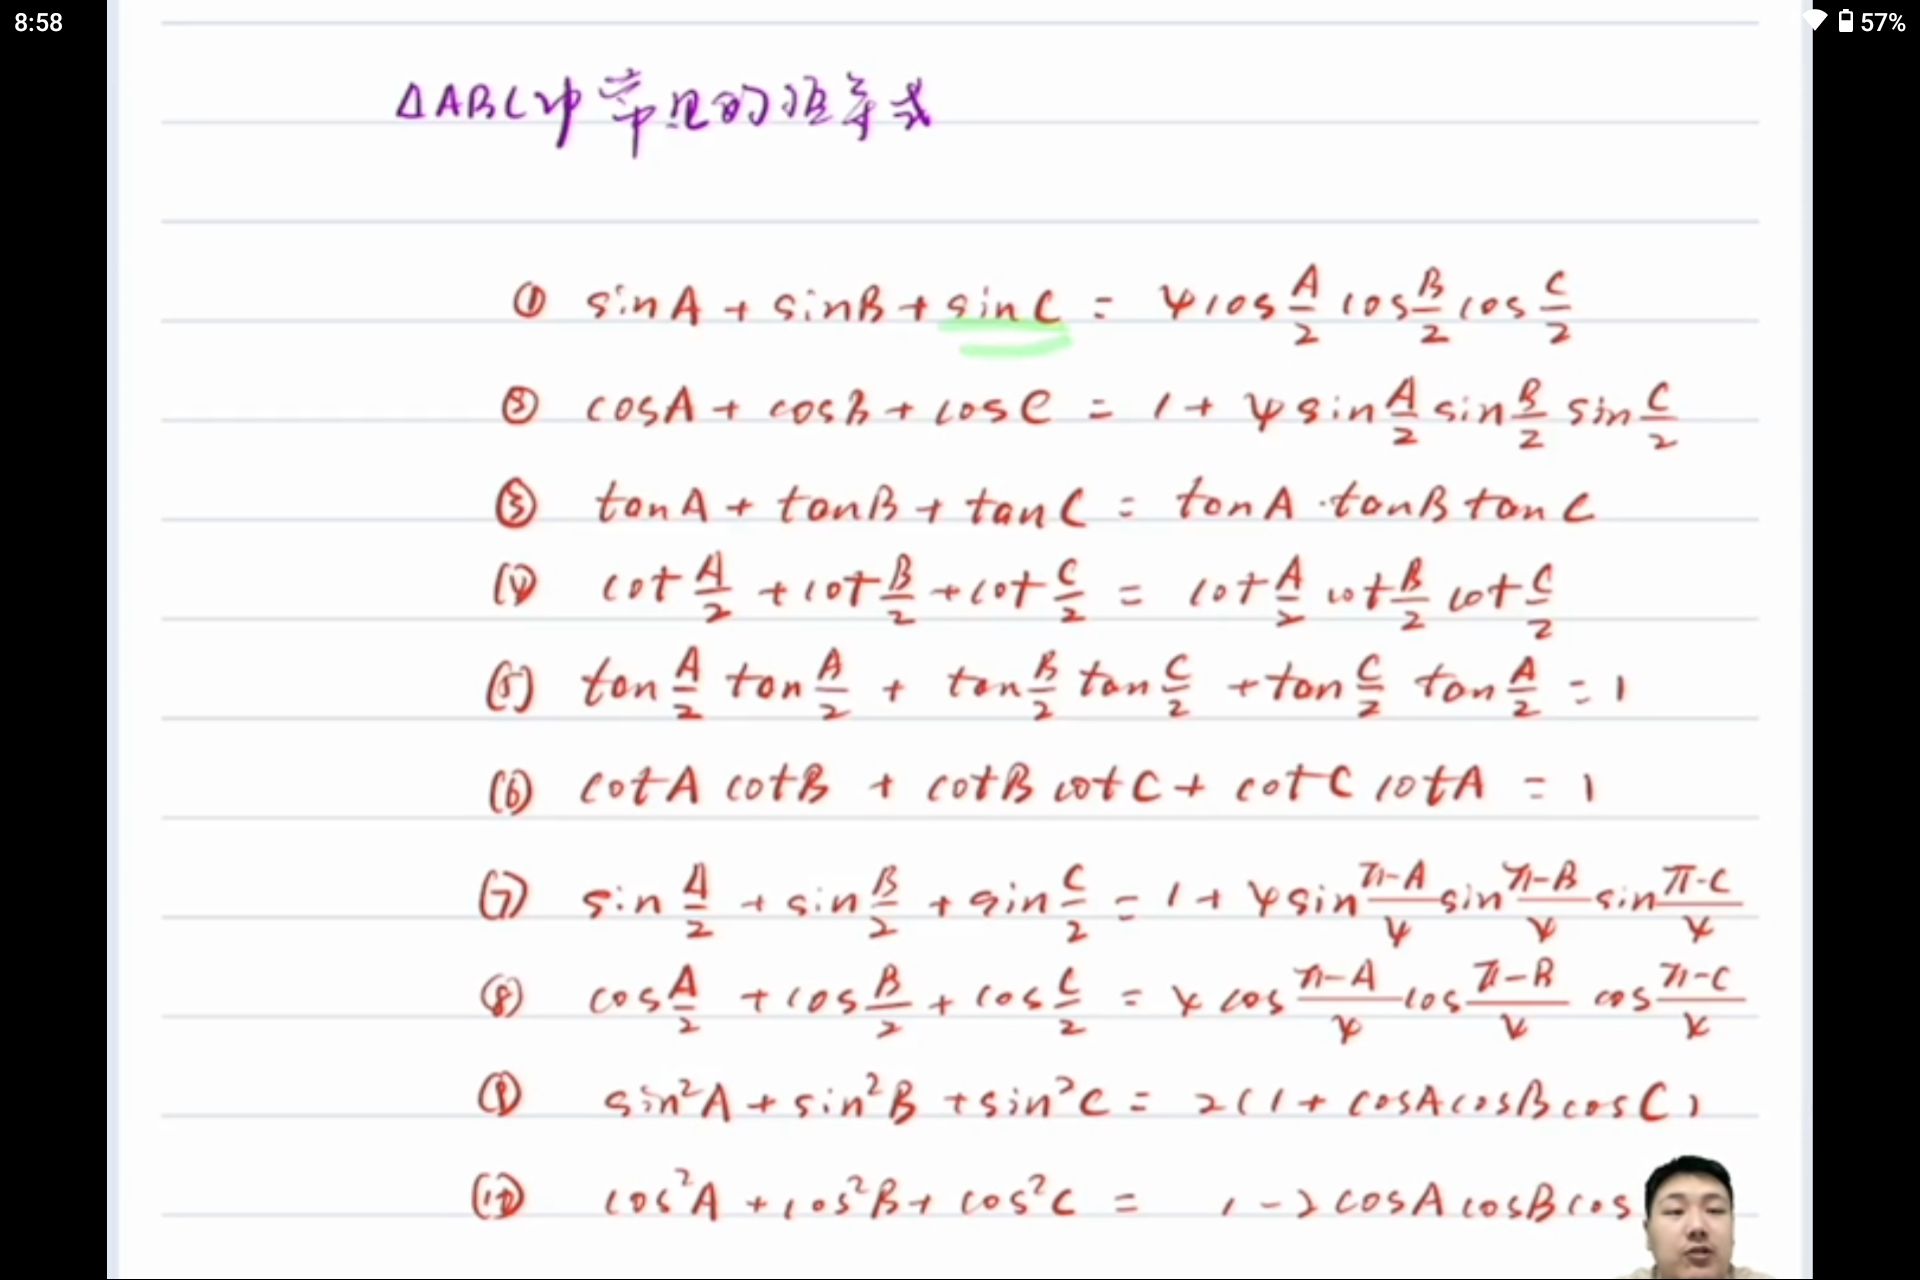 8:58
57%
△ABC中常见的恒等式
① sinA + sinB + sinC = 4cos A/2 cos B/2 cos C/2
② cosA + cosB + cosC = 1 + 4sin A/2 sin B/2 sin C/2
③ tanA + tanB + tanC = tanA · tanB tanC
(4) cot A/2 + cot B/2 + cot C/2 = cot A/2 cot B/2 cot C/2
(5) tan A/2 tan A/2 + tan B/2 tan C/2 + tan C/2 tan A/2 = 1
(6) cotA cotB + cotB cotC + cotC cotA = 1
(7) sin A/2 + sin B/2 + sin C/2 = 1 + 4sin π-A/4 sin π-B/4 sin π-C/4
(8) cos A/2 + cos B/2 + cos C/2 = 4 cos π-A/4 cos π-B/4 cos π-C/4
(9) sin²A + sin²B + sin²C = 2(1 + cosAcosBcosC)
(10) cos²A + cos²B + cos²C = 1 - 2cosAcosBcos